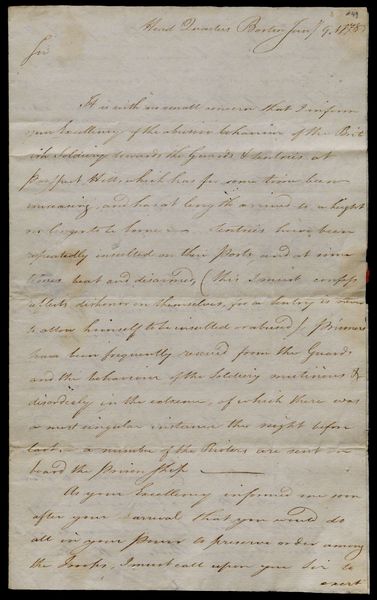 Head Quarters Boston Jany 9. 1778
Sir
It is with no small concern that I inform
your Excellency of the abusive behaviour of the Brit
ish Soldiery towards the Guards & Sentries at
Prospect Hill, which has for some time been
increasing, and has at length arrived to a height
no longer to be borne — Sentries have been
repeatedly insulted on their Posts and at some
times beat and disarmed, (this I must confess
reflects dishonor on themselves, for a Sentry is never
to allow himself to be insulted or abused) Prisoners
have been frequently rescued from the Guards
and the behaviour of the Soldiery mutinous &
disorderly in the extreme, of which there was
a most singular instance the night before
last, — a number of the Rioters are sent on
board the Prison Ship —
As your Excellency informed me soon
after your arrival that you would do
all in your Power to preserve order among
the Troops, I must call upon you Sir to
exert